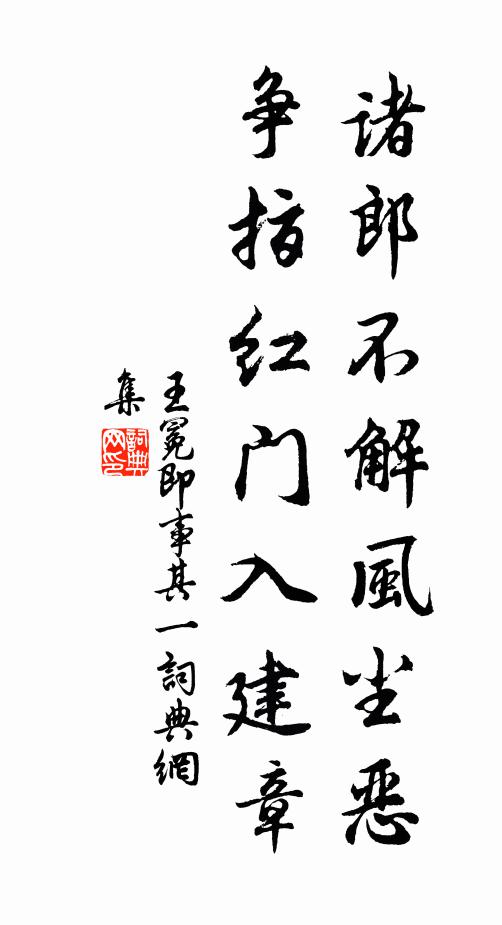 诸郎不解風尘惡
争指红门入建章
王冕即事其一詞典網
集
詞典网印